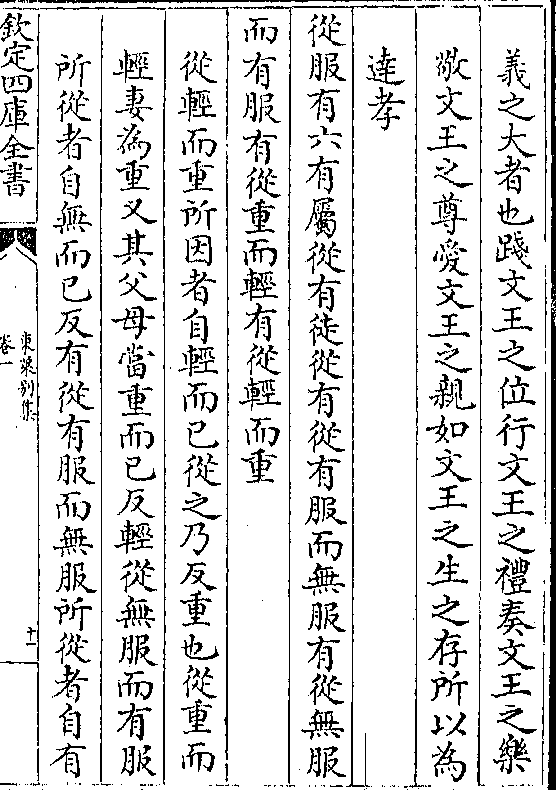 義之大者也踐文王之位行文王之禮奏文王之樂
敬文王之尊愛文王之親如文王之生之存所以為
達孝
從服有六有屬從有徒從有從有服而無服有從無服
而有服有從重而輕有從輕而重
從輕而重所因者自輕而已從之乃反重也從重而
輕妻為重又其父母當重而已反輕從無服而有服
所從者自無而已反有從有服而無服所從者自有
欽定四庫全書
東萊別集
卷一
十一